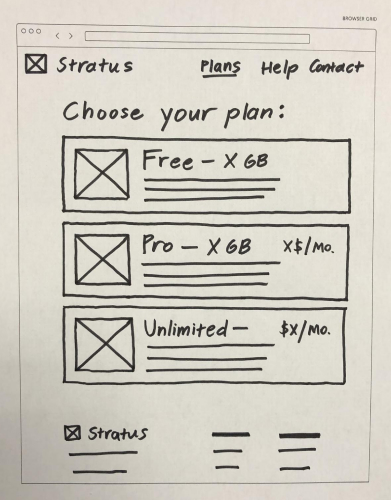 BROWSER GRID
Stratus Plans Help Contact
Choose your plan:
Free – X GB
Pro – X GB X$/Mo.
Unlimited – $X/Mo.
Stratus